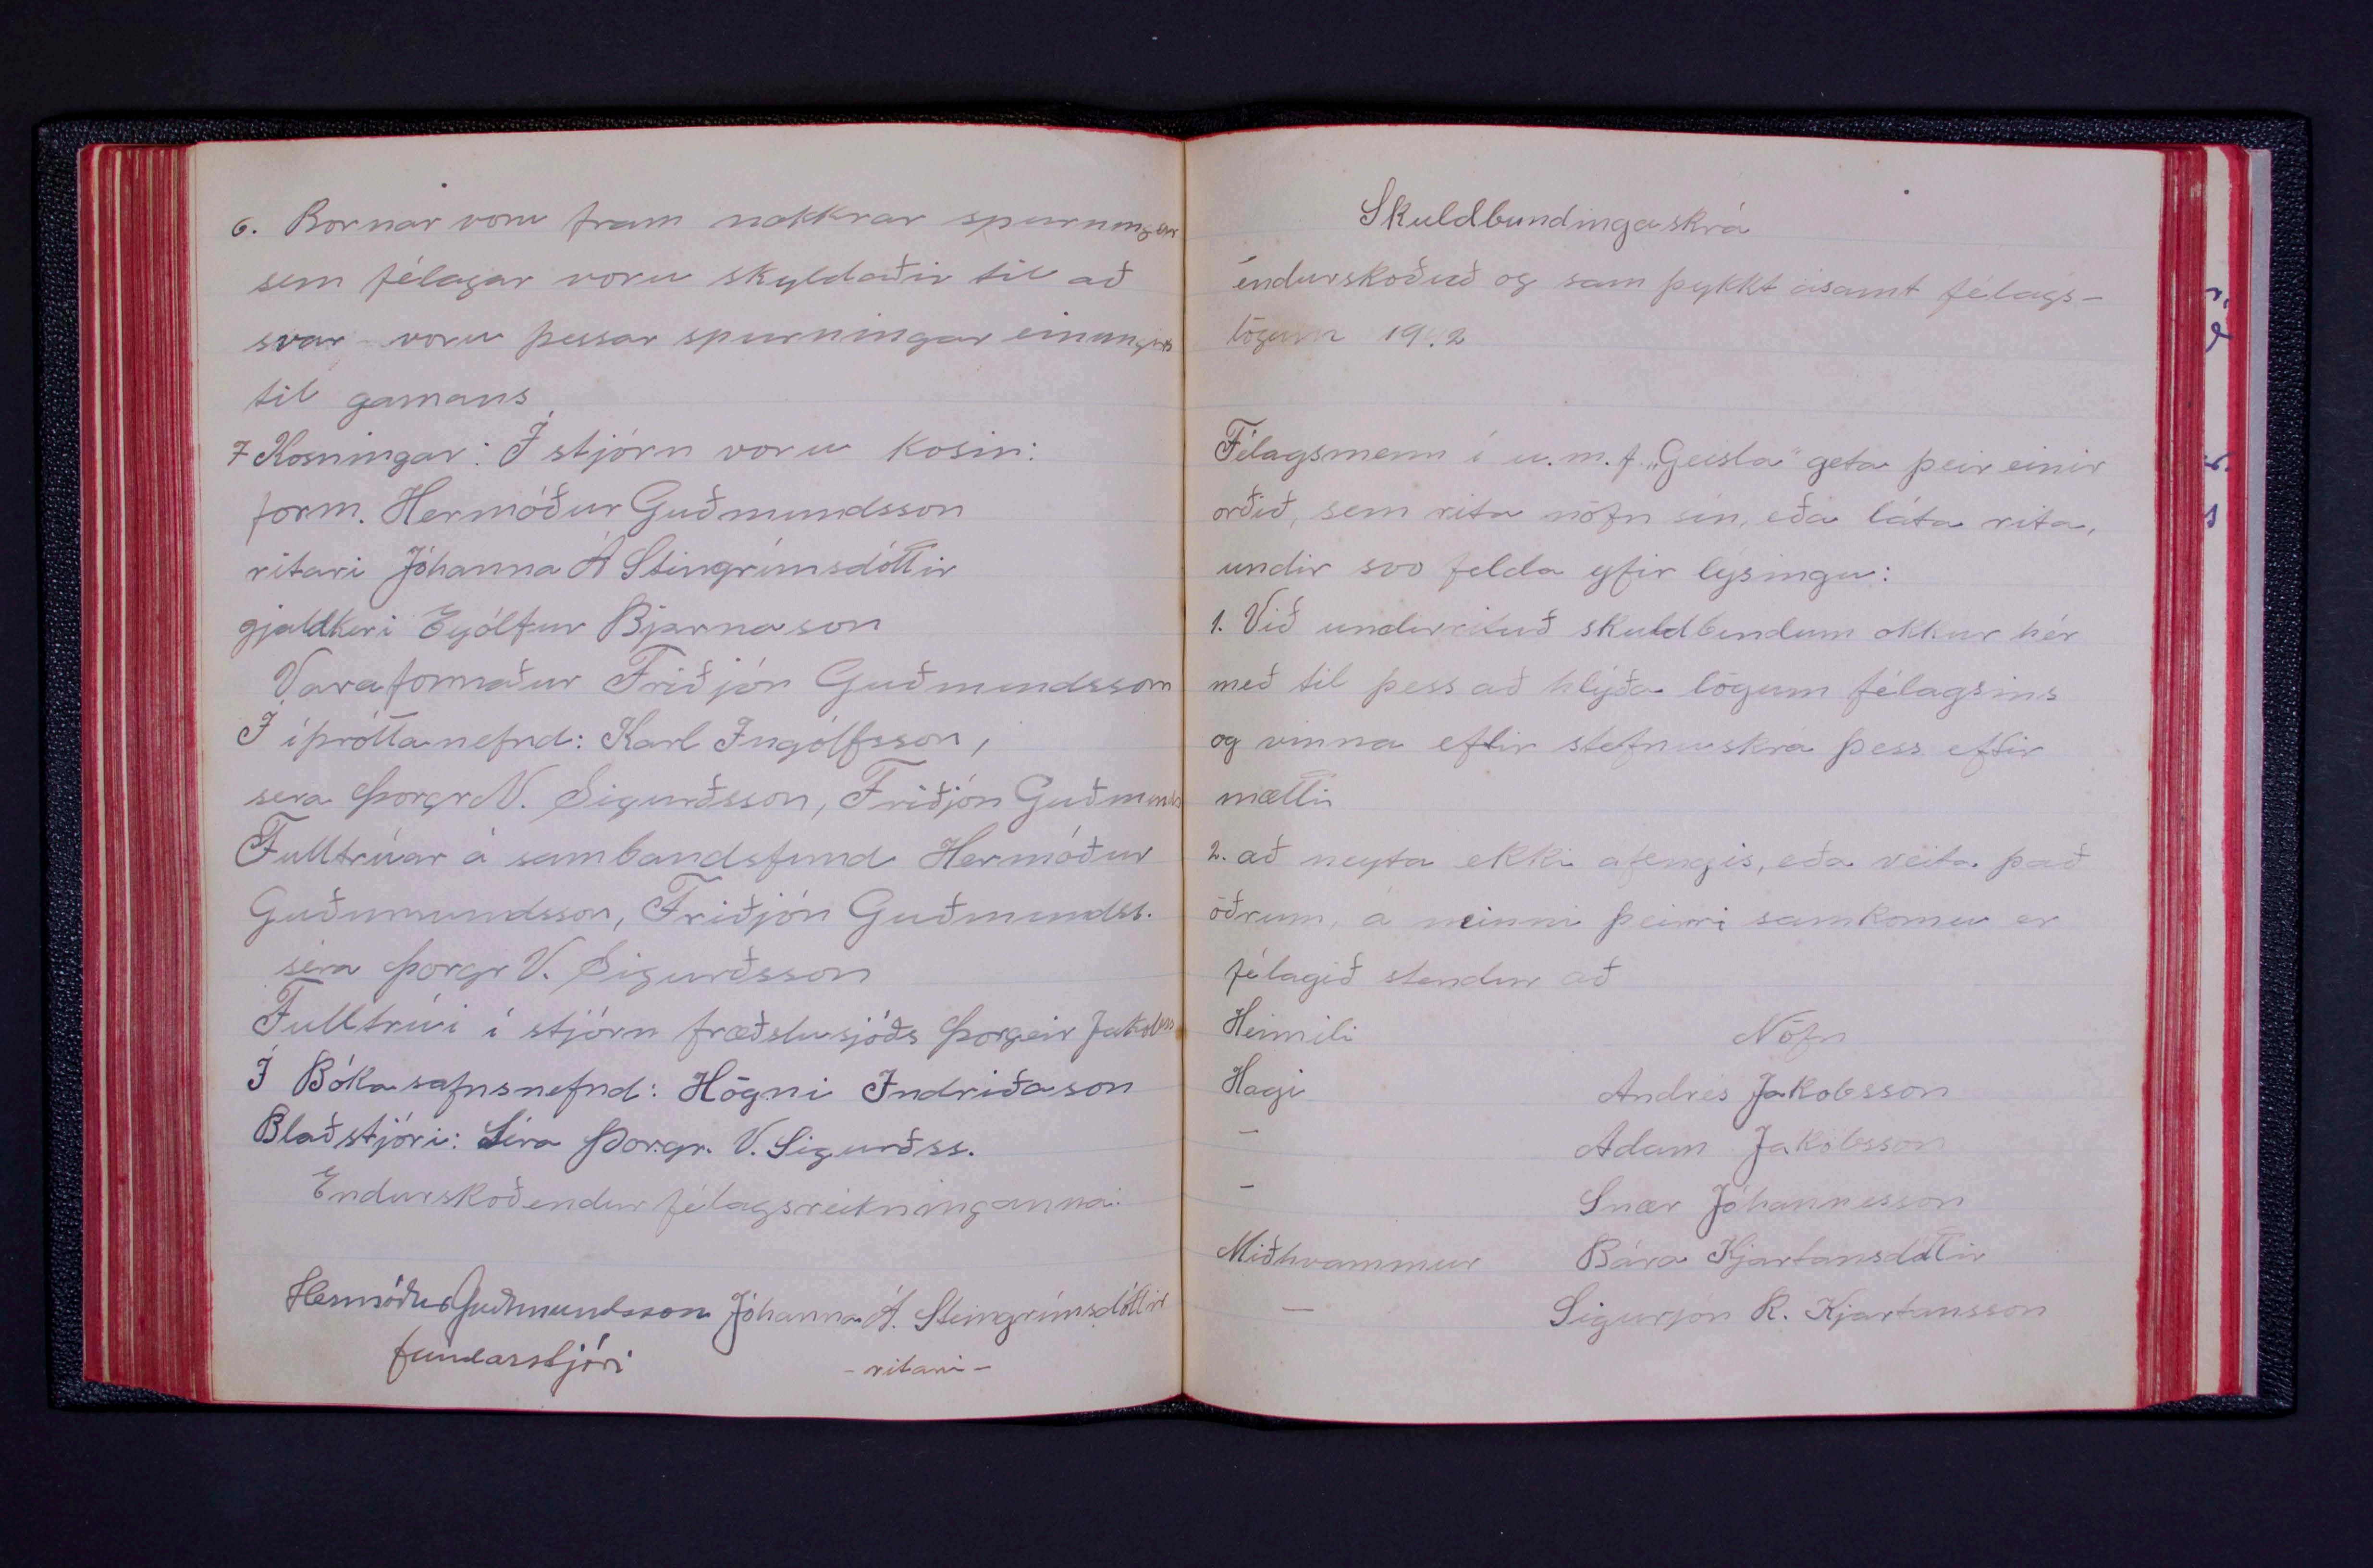 6. Bornar voru fram nokkrar spurningar
sem félagar voru skyldaðir til að
svar voru þessar spurningar einungis
til gamans
7 Kosningar: Í stjórn voru kosin:
form. Hermóður Guðmundsson
ritari Jóhanna Á Steingrímsdóttir
gjaldkeri Eyólfur Bjarnason
Varaformaður Friðjón Guðmundsson
Í íþróttanefnd: Karl Ingólfsson,
séra Þorgr V. Sigurðsson, Friðjón Guðmunds
Fulltrúar á sambandsfund Hermóður
Guðumundsson, Friðjón Guðmundss.
séra Þorgr V. Sigurðsson
Fulltrúi í stjórn fræðslusjóðs Þorgeir Jakobss
Í Bókasafnsnefnd: Högni Indriðason
Blaðstjóri: Séra Þorgr. V. Sigurðss.
Endurskoðendur félagsreikninganna:
Hermóður Guðmundsson Jóhanna Á. Steingrímsdóttir
fundarstjóri - ritari -
Skuldbundingaskrá
endurskoðuð og samþykkt ásamt félags-
lögum 1942
Félagsmenn í u.m.f. „Geisla" geta þeir einir
orðið, sem rita nöfn sín, eða láta rita,
undir svo felda yfir lýsingu:
1. Við undirrituð skuldbindum okkur hér
með til þess að hlýða lögum félagsins
og vinna eftir stefnuskrá þess eftir
mætti
2. að neyta ekki áfengis, eða veita það
öðrum, á neinni þeirri samkomu er
félagið stendur að
Heimili Nöfn
Hagi Andrés Jakobsson
- Adam Jakobsson
- Snær Jóhannesson
Miðhvammur Bára Kjartansdóttir
- Sigurjón R. Kjartansson